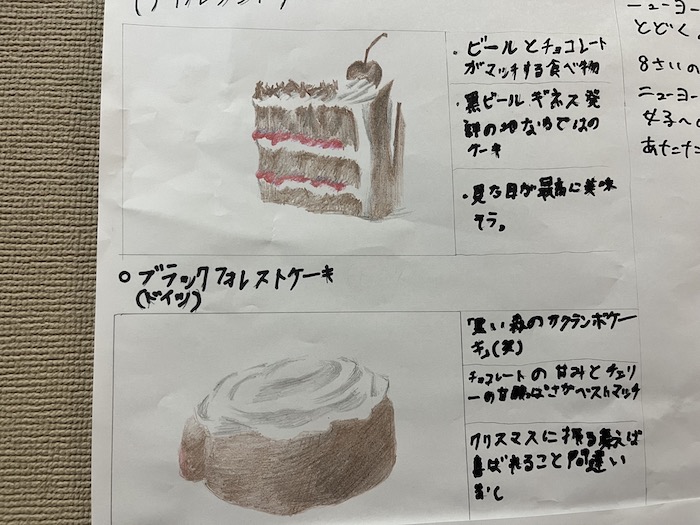 ・ビールとチョコレート
がマッチする食べ物
・黒ビール ギネス発
祥の地ならではの
ケーキ
・見た目が最高に美味
そう。
○ブラックフォレストケーキ
(ドイツ)
「黒い森のサクランボケー
キ」(笑)
チョコレートの甘みとチェリ
ーの甘酸っぱさがベストマッチ
クリスマスに振る舞えば
喜ばれること間違い
なし
ニューヨー
とどく。
8さいの
ニューヨー
女子への